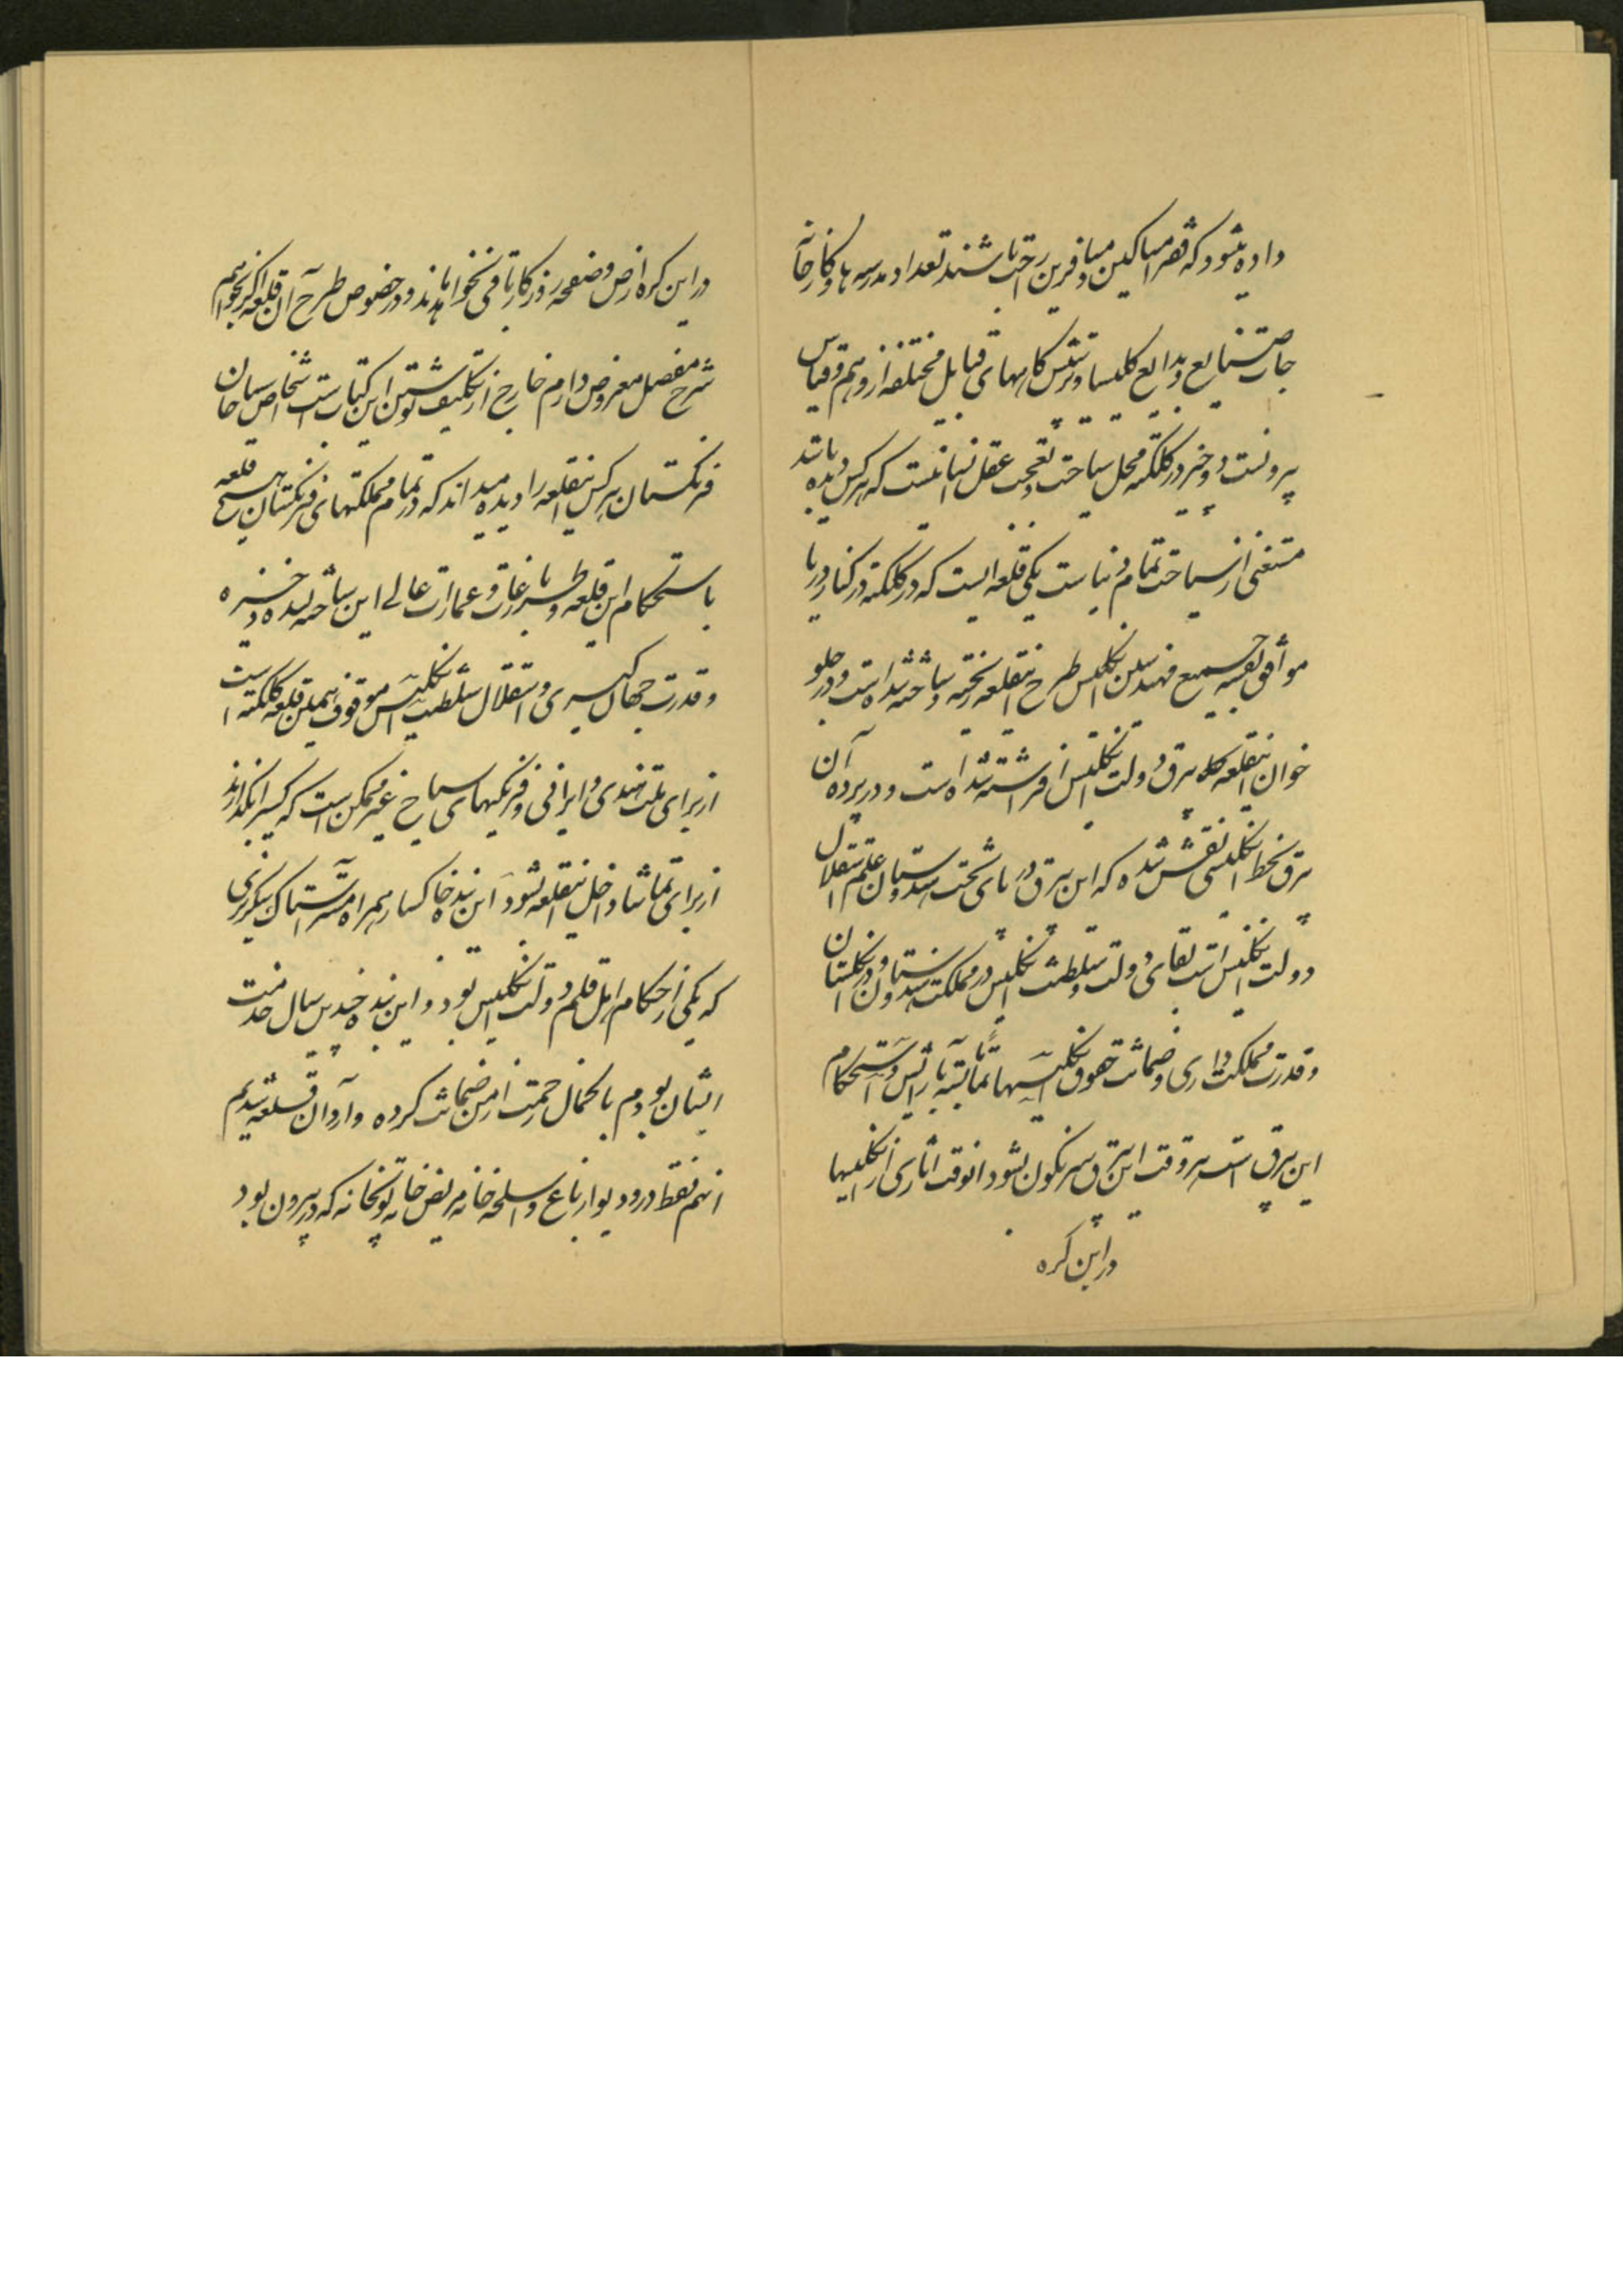 داده میشود که فقرا مساکین و مسافرین راحت باشند تعداد مدرسه ها و کارخانه
جات صنایع و بدایع کلیسا و پرستش کاههای قبایل مختلفه از وهم و قیاس
بیرونست دو چیز در کلکته محل سیاحت و تعجب عقل انسانیست که هر کس دیده باشد
مستغنی از سیاحت تمام دنیا ست یکی قلعه ایست که در کلکته در کنار دریا
موافق نقشه جمیع مهندسین انگلیس طرح اینقلعه ریخته و ساخته شده است و در جلو
خوان اینقلعه کلاه بیرق دولت انگلیس افراشته شده است و در پرده آن
بیرق بخط انگلیسی نقش شده که این بیرق در پای تخت هندوستان علم استقلال
دولت انگلیس است بقای دولت و سلطنت انگلیس در مملکت هندوستان و در انگلستان
و قدرت مملکت داری و ضمانت حقوق انگلیسیها تماما بسته باسایش و استحکام
این بیرق است هر وقت این بیرق سرنکون بشود انوقت اثاری از انگلیسیها
در این کره
در این کره ارض و صفحه روزکار باقی نخواهد ماند و در خصوص طرح آن قلعه اکر بخواهم
شرح مفصل معروض دارم خارج از تکلیف نوشتن این کتاب است اشخاص سیاحان
فرنکستان هر کس اینقلعه را دیده میداند که در تمام مملکتهای فرنکستان هیچ قلعه
باستحکام این قلعه و باین طرز عمارت و عمارات عالی این ساخته نشده و ذخیره
و قدرت جهان کیری و استقلال سلطنت انگلیس موقوف بهمین قلعه کلکته است
از برای ملت هندی و ایرانی و فرنکیهای سیاح غیر ممکن است که کسیرا بگذارند
از برای تماشا داخل اینقلعه بشود این بنده خاکسار همراه مستر استاک سکرتری
که یکی از حکام اهل قلم دولت انگلیس بود و این بنده چندین سال خدمت
ایشان بودم با کمال زحمت از من ضمانت کرده وارد آن قلعه شدیم
انهم فقط در و دیوار باغ و اسلحه خانه مریض خانه توپخانه که در بیرون بود